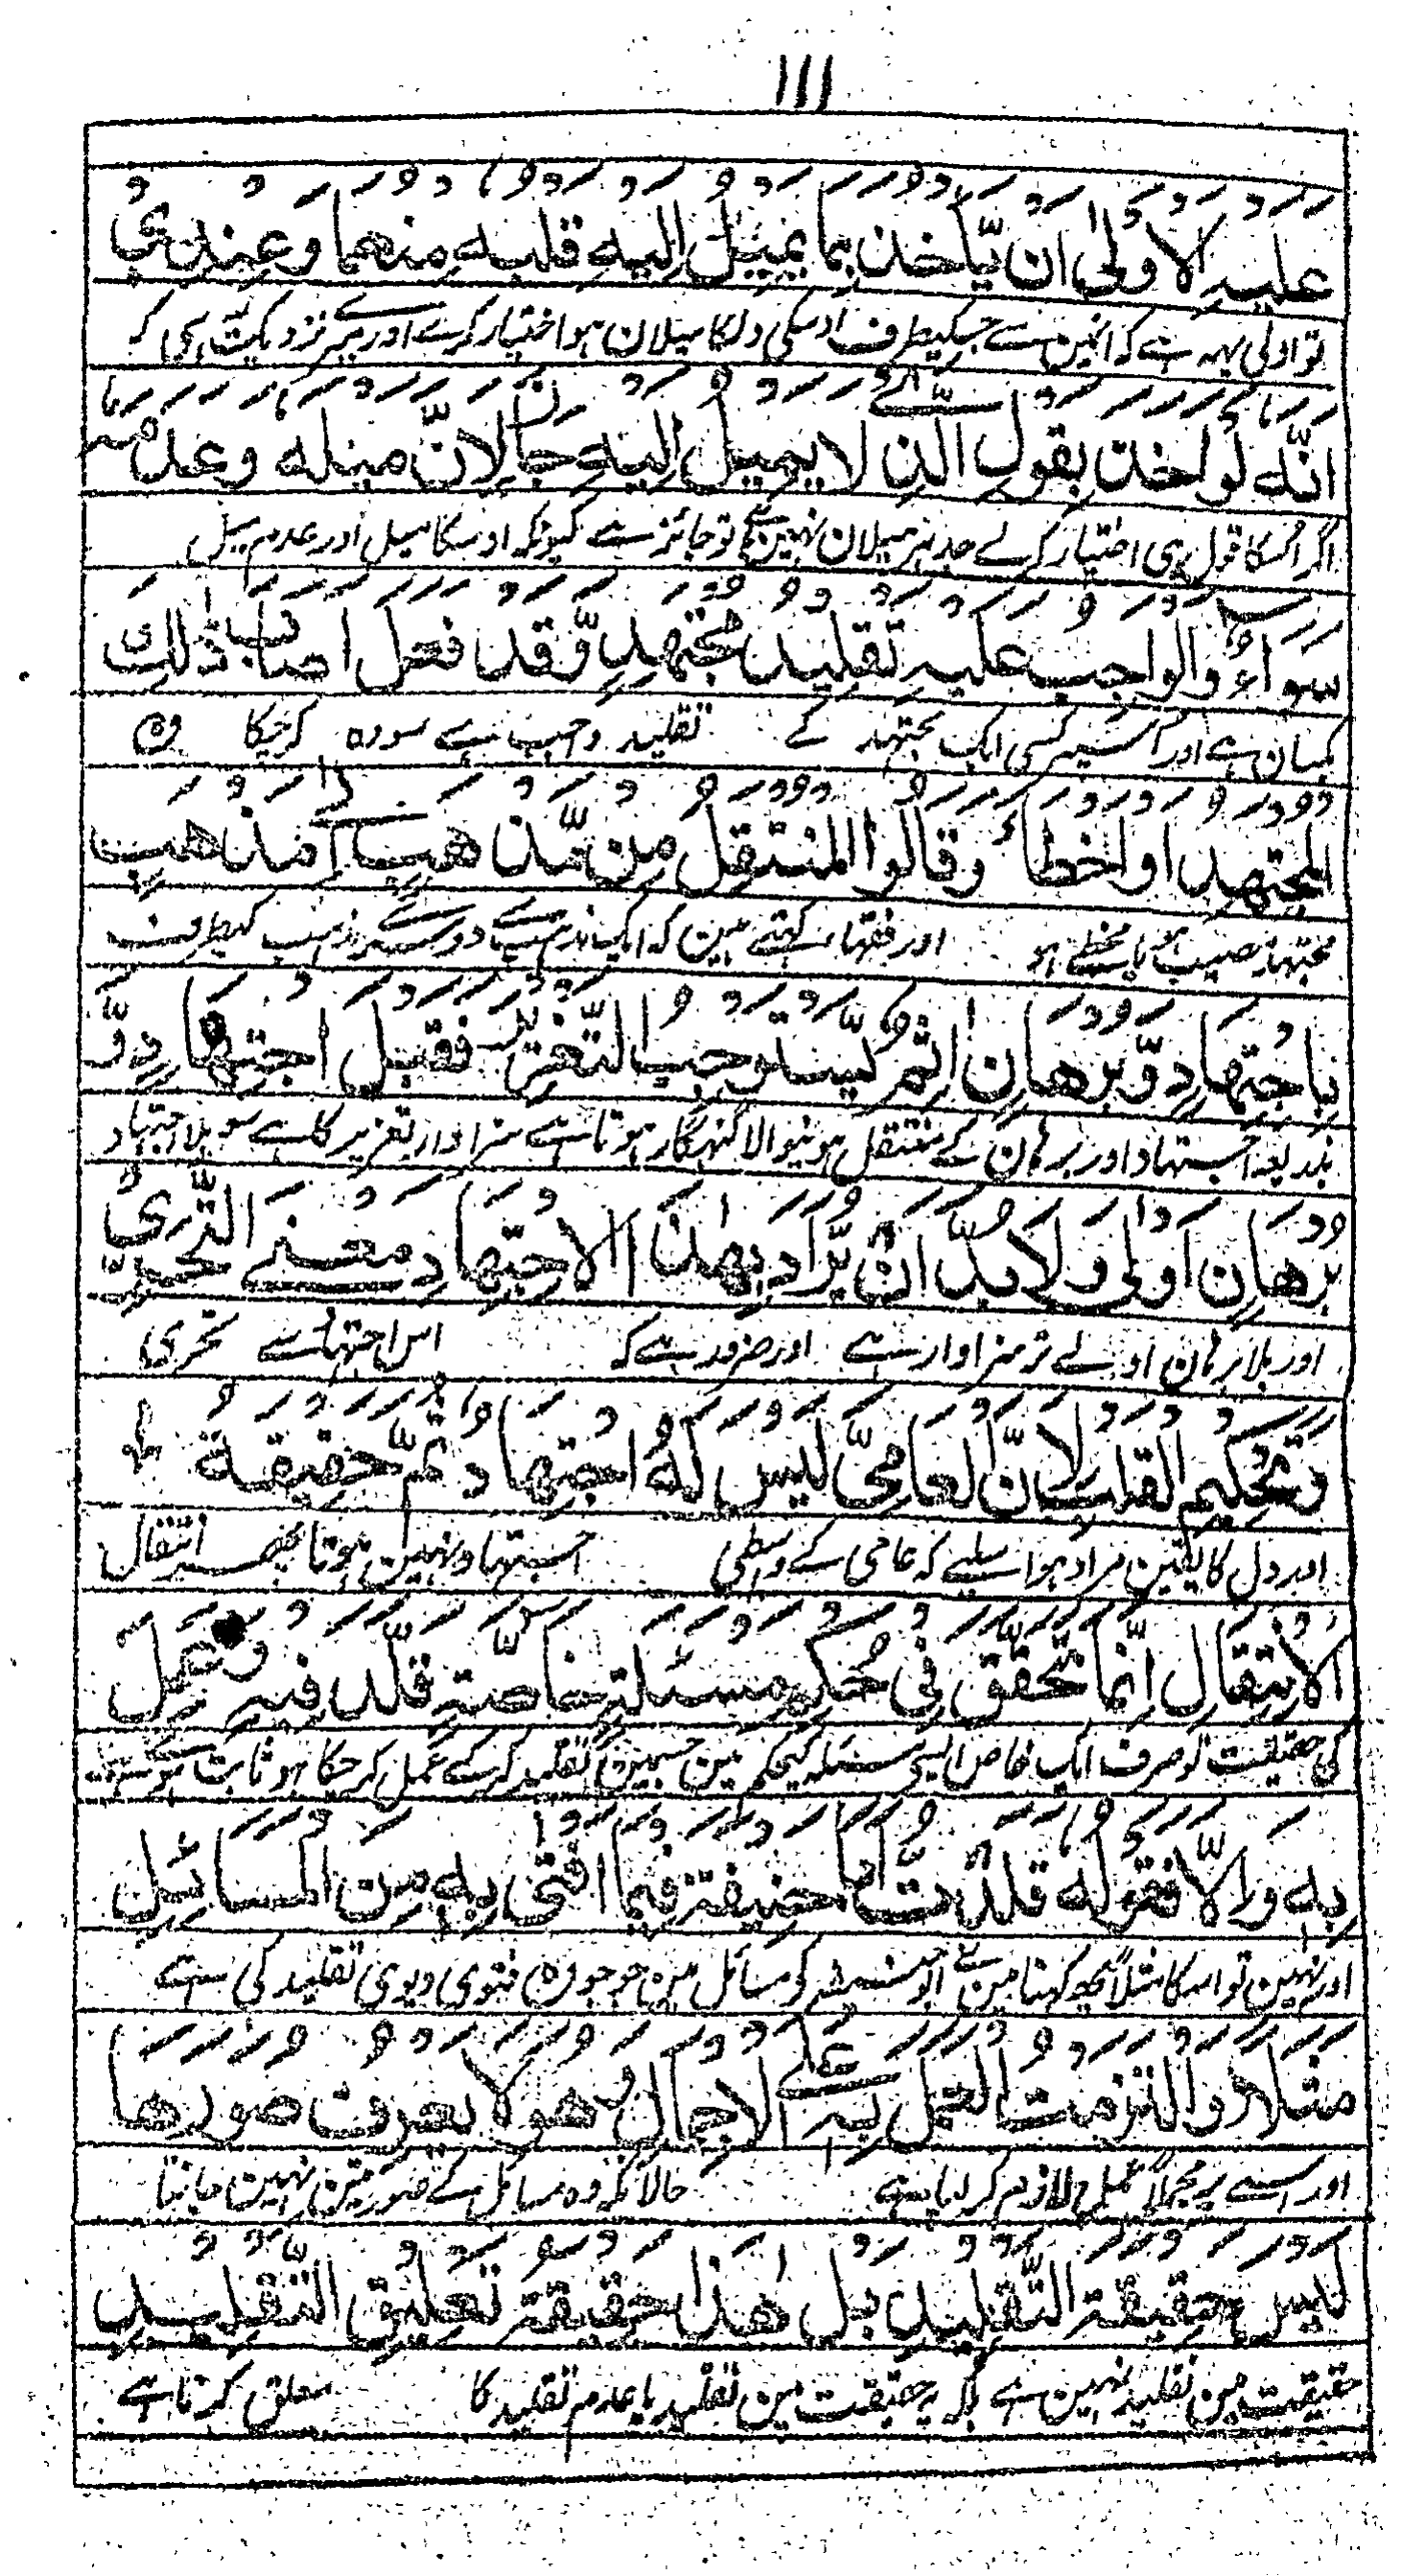 ١١١
عليه الاولى ان يّأخذ بما يميل اليه قلبه منهما وعندي
تو اولی یہہ ہے کہ انمین سے جسکیطرف اوسکی دلکا میلان ہو اختیار کرے اور میرے نزدیک یہی کہ
انّه لو اخذ بقول الّذي لا يميل اليه جاز لانّ ميله وعدمه
اگر اُسکا قول ہی اختیار کرلے جدہر میلان نہین ہے تو جائز ہے کیونکہ اوسکا میل اور عدم میل
سواءٌ والواجب عليه تقليد مجتهدٍ وّقد فعل اصاب ذلك
یکسان ہے اور اسپر کسی ایک مجتہد کے تقلید واجب ہے سو وہ کرچکا وہ
المجتهد او اخطأ وقالوا المنتقل من مّذهب الى مذهب
مجتہد مصیب ہو یا مخطے ہو اور فقہاء کہتے ہین کہ ایک مذہب سے دوسرے مذہب کیطرف
باجتهادٍ وّبرهانٍ اثم يستوجب التّعزير فقبل اجتهادٍ وّ
بذریعہ اجتہاد اور برہان کے منتقل ہونیوالا گنہگار ہوتا ہے سزاوار تعزیر کا ہے سو بلا اجتہاد
برهانٍ اولى ولا بدّ ان يّراد بهذا الاجتهاد معنى التّحرّي
اور بلا برہان اولے تر سزاوار ہے اور ضرور ہے کہ اس اجتہاد سے تحری
وتحكيم القلب لانّ العامّيّ ليس له اجتهاد ثمّ حقيقة
اور دل کا یقین مراد ہو اسلیے کہ عامی کے واسطی اجتہاد نہین ہوتا پھر انتقال
الانتقال انّما تحقّق في حكم مسئلةٍ خاصّةٍ قلّد فيه وعمل
کی حقیقت تو صرف ایک خاص ایسی مسئلہ کیحکم مین جسمین تقلید کرکے عمل کرچکا ہو ثابت ہوتی ہے
به والّا فقوله قلّدت ابا حنيفة فيما افتى به من المسائل
اور نہین تو اسکا مثلاً یہ کہنا مین نے ابو حنیفہ کو مسائل مین جو جو وہ فتوی دیوی تقلید کی ہے
مثلا والتزمت العمل به على الاجمال وهو لا يعرف صورها
اور اسے پر مجملاً عمل لازم کرلیا ہے حالانکہ وہ مسائل کے صورتین نہین جانتا
ليس حقيقة التّقليد بل هذا حقيقة تعليق التّقليد
حقیقت مین تقلید نہین ہے بلکہ یہ حقیقت مین تقلید یا عدم تقلید کا معلق کرنا ہے